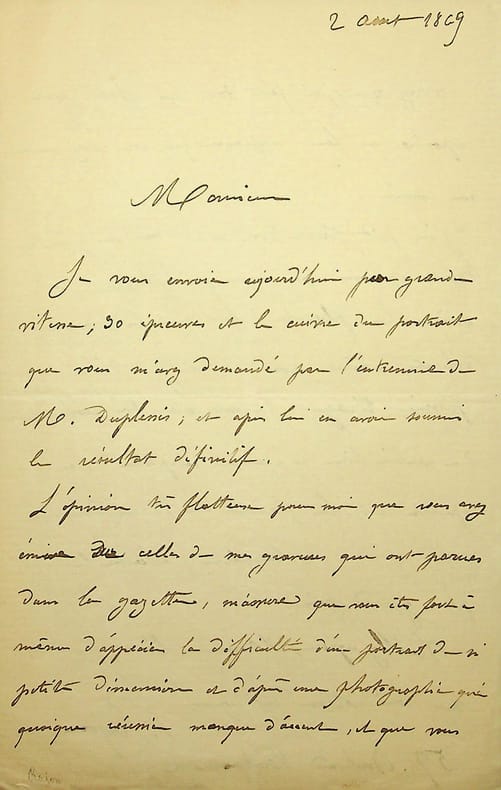 2 août 1869
Monsieur
Je vous envoie aujourd'hui par grande
vitesse, 30 épreuves et le cuivre du portrait
que vous m'avez demandé par l'entremise de
M. Duplessis; et après lui en avoir soumis
le résultat définitif.
L'opinion très flatteuse pour moi que vous avez
émise celles de mes gravures qui ont parues
dans la gazette, m'assure que vous êtes fort à
même d'apprécier la difficulté d'un portrait de si
petite dimension et d'après une photographie qui
quoique réussie manque d'accent, et que vous